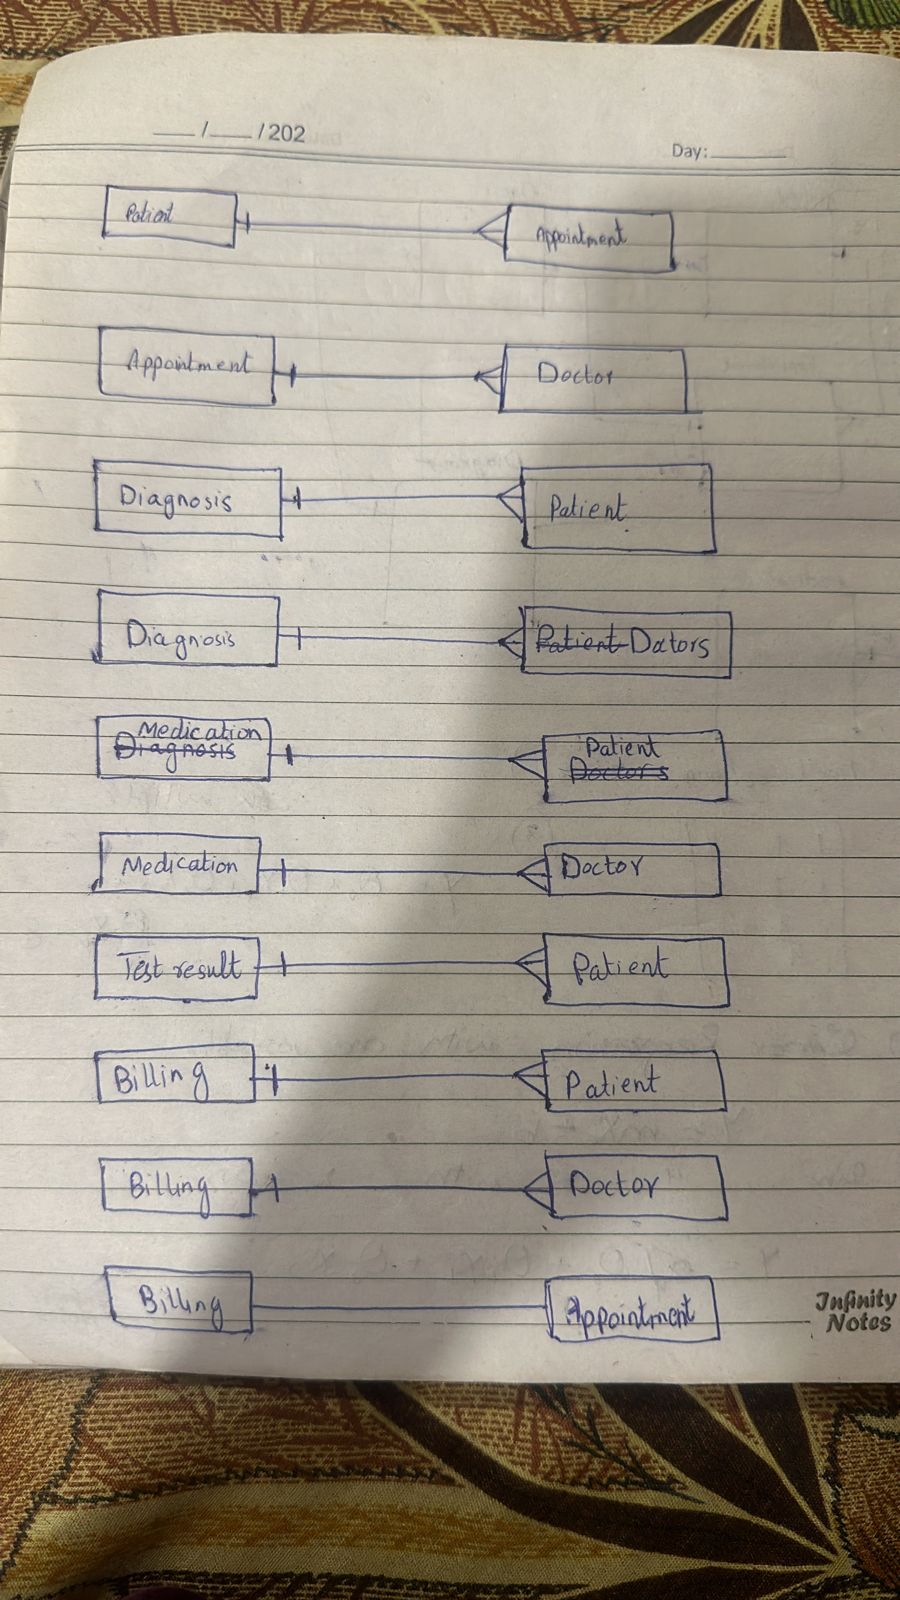 __/__/202
Day:____
Patient Appointment
Appointment Doctor
Diagnosis Patient
Diagnosis Patient Doctors
Medication
Diagnosis
Patient
Doctors
Medication Doctor
Test result Patient
Billing Patient
Billing Doctor
Billing Appointment
Infinity
Notes